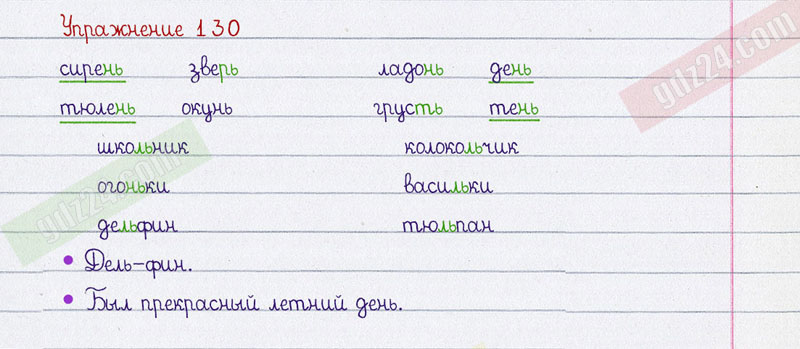 Упражнение 130
сирень зверь ладонь день
тюлень окунь грусть тень
школьник колокольчик
огоньки васильки
дельфин тюльпан
• Дель-фин.
• Был прекрасный летний день.
gdz24.com
gdz24.com